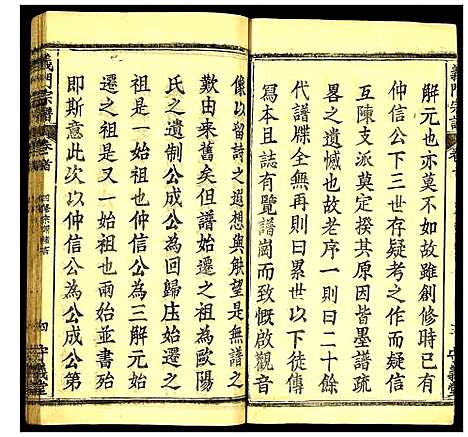 義門宗譜 卷首
解元也亦莫不如故雖創修時已有
仲信公下三世存疑考之作然而信
互陳支派莫定揆其原因皆墨譜疏
畧之遺憾也故老序一則曰二十餘
代譜牒全無再則曰累世以老譜
為本且誌有覽譜崗而致慨啟觀音
像以留詩之遐想與觖望是無世系
歎由來舊矣但譜始遷之祖為歐陽
氏之遺制公成公為回歸庄始遷之
祖是一始祖也仲信公為三解元始
遷之祖是又一始祖也兩始並書殆
即斯意此次以仲信公為公成公第
義門宗譜 卷首
四修宗譜緒言
四 守義堂